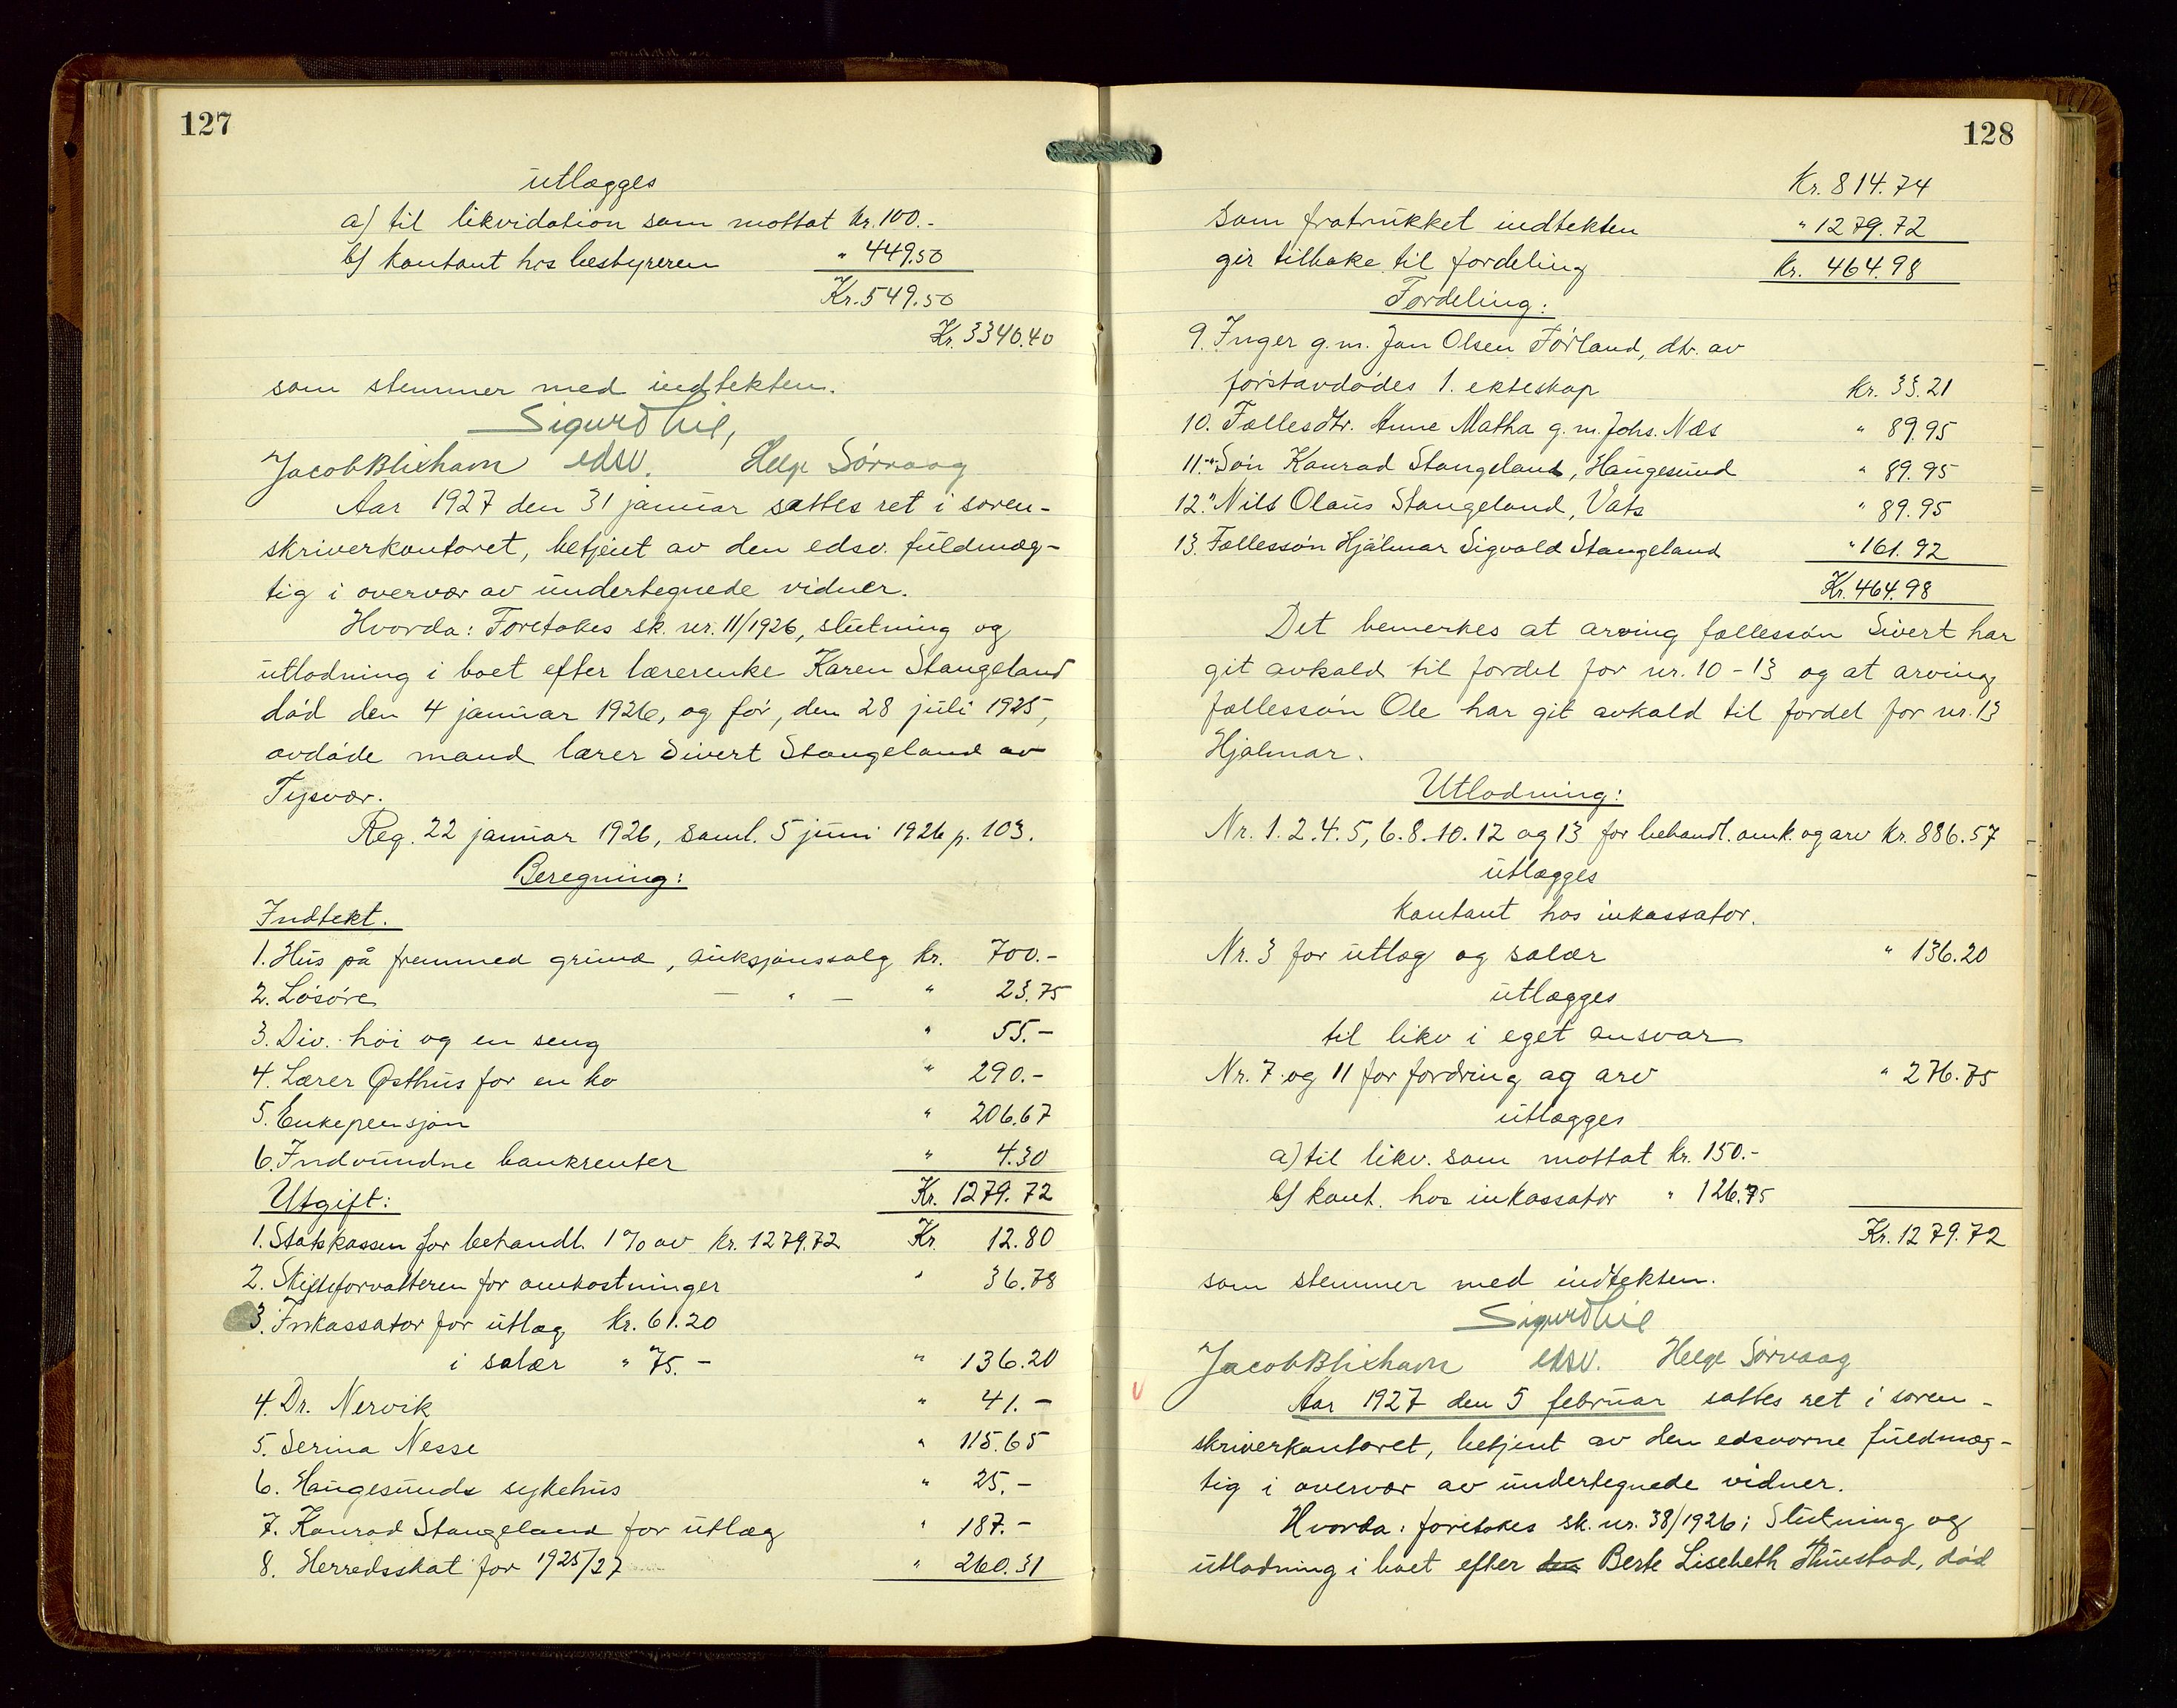 127
utlægges
a) til likvidation som mottat kr. 100.-
b) kontant hos bestyreren " 449.50
Kr. 549.50
Kr. 3340.40
som stemmer med indtekten.
Jacob Blixhavn edsv. Helge Sørvaag
Aar 1927 den 31 januar sattes ret i soren-
skriverkontoret, betjent av den edsv. fuldmæg-
tig i overvær av undertegnede vidner.
Hvorda: Foretokes sk. nr. 11/1926, slutning og
utlodning i boet efter lærerenke Karen Stangeland
død den 4 januar 1926, og før, den 28 juli 1925,
avdøde mand lærer Sivert Stangeland av
Tysvær.
Reg. 22 januar 1926, saml. 5 juni 1926 p. 103.
Beregning:
Indtekt.
1. Hus på fremmed grund, auksjonssalg kr. 700.-
2. Løsøre — " — " 23.75
3. Div. høi og en seng " 55.-
4. Lærer Østhus for en ko " 290.-
5. Enkepensjon " 206.67
6. Indvundne bankrenter " 4.30
Kr. 1279.72
Utgift:
1. Statskassen for behandl. 1% av kr. 1279.72 Kr. 12.80
2. Skifteforvalteren for omkostninger " 36.78
3. Inkassator for utlæg kr. 61.20
i salær " 75.- " 136.20
4. Dr. Nervik " 41.-
5. Serina Nesse " 115.65
6. Haugesunds sykehus " 25.-
7. Konrad Stangeland for utlæg " 187.-
8. Herredsskat for 1925/27 " 260.31
128
Kr. 814.74
som fratrukket indtekten " 1279.72
gir tilbake til fordeling Kr. 464.98
Fordeling:
9. Inger g.m. Jon Olsen Førland, dtr. av
førstavdødes 1. ekteskap kr. 33.21
10. Fællesdtr. Anne Matha g.m. Johs. Næs " 89.95
11. " Søn Konrad Stangeland, Haugesund " 89.95
12. " Nils Olaus Stangeland, Vats " 89.95
13. Fællessøn Hjålmar Sigvald Stangeland " 161.92
Kr. 464.98
Det bemerkes at arving fællessøn Sivert har
git avkald til fordel for nr. 10-13 og at arving
fællessøn Ole har git avkald til fordel for nr. 13
Hjalmar.
Utlodning:
Nr. 1. 2. 4. 5, 6. 8. 10. 12 og 13 for behandl. omk. og arv kr. 886.57
utlægges
kontant hos inkassator.
Nr. 3 for utlæg og salær " 136.20
utlægges
til likv i eget ansvar
Nr. 7 og 11 for fordring og arv " 276.75
utlægges
a) til likv. som mottat kr. 150.-
b) kont. hos inkassator " 126.75
Kr. 1279.72
som stemmer med indtekten.
Jacob Blixhavn edsv. Helge Sørvaag
Aar 1927 den 5 februar sattes ret i soren-
skriverkontoret, betjent av den edsvorne fuldmæg-
tig i overvær av undertegnede vidner.
Hvorda: foretokes sk. nr. 38/1926; Slutning og
utlodning i boet efter Berte Lisebeth Thuestad, død